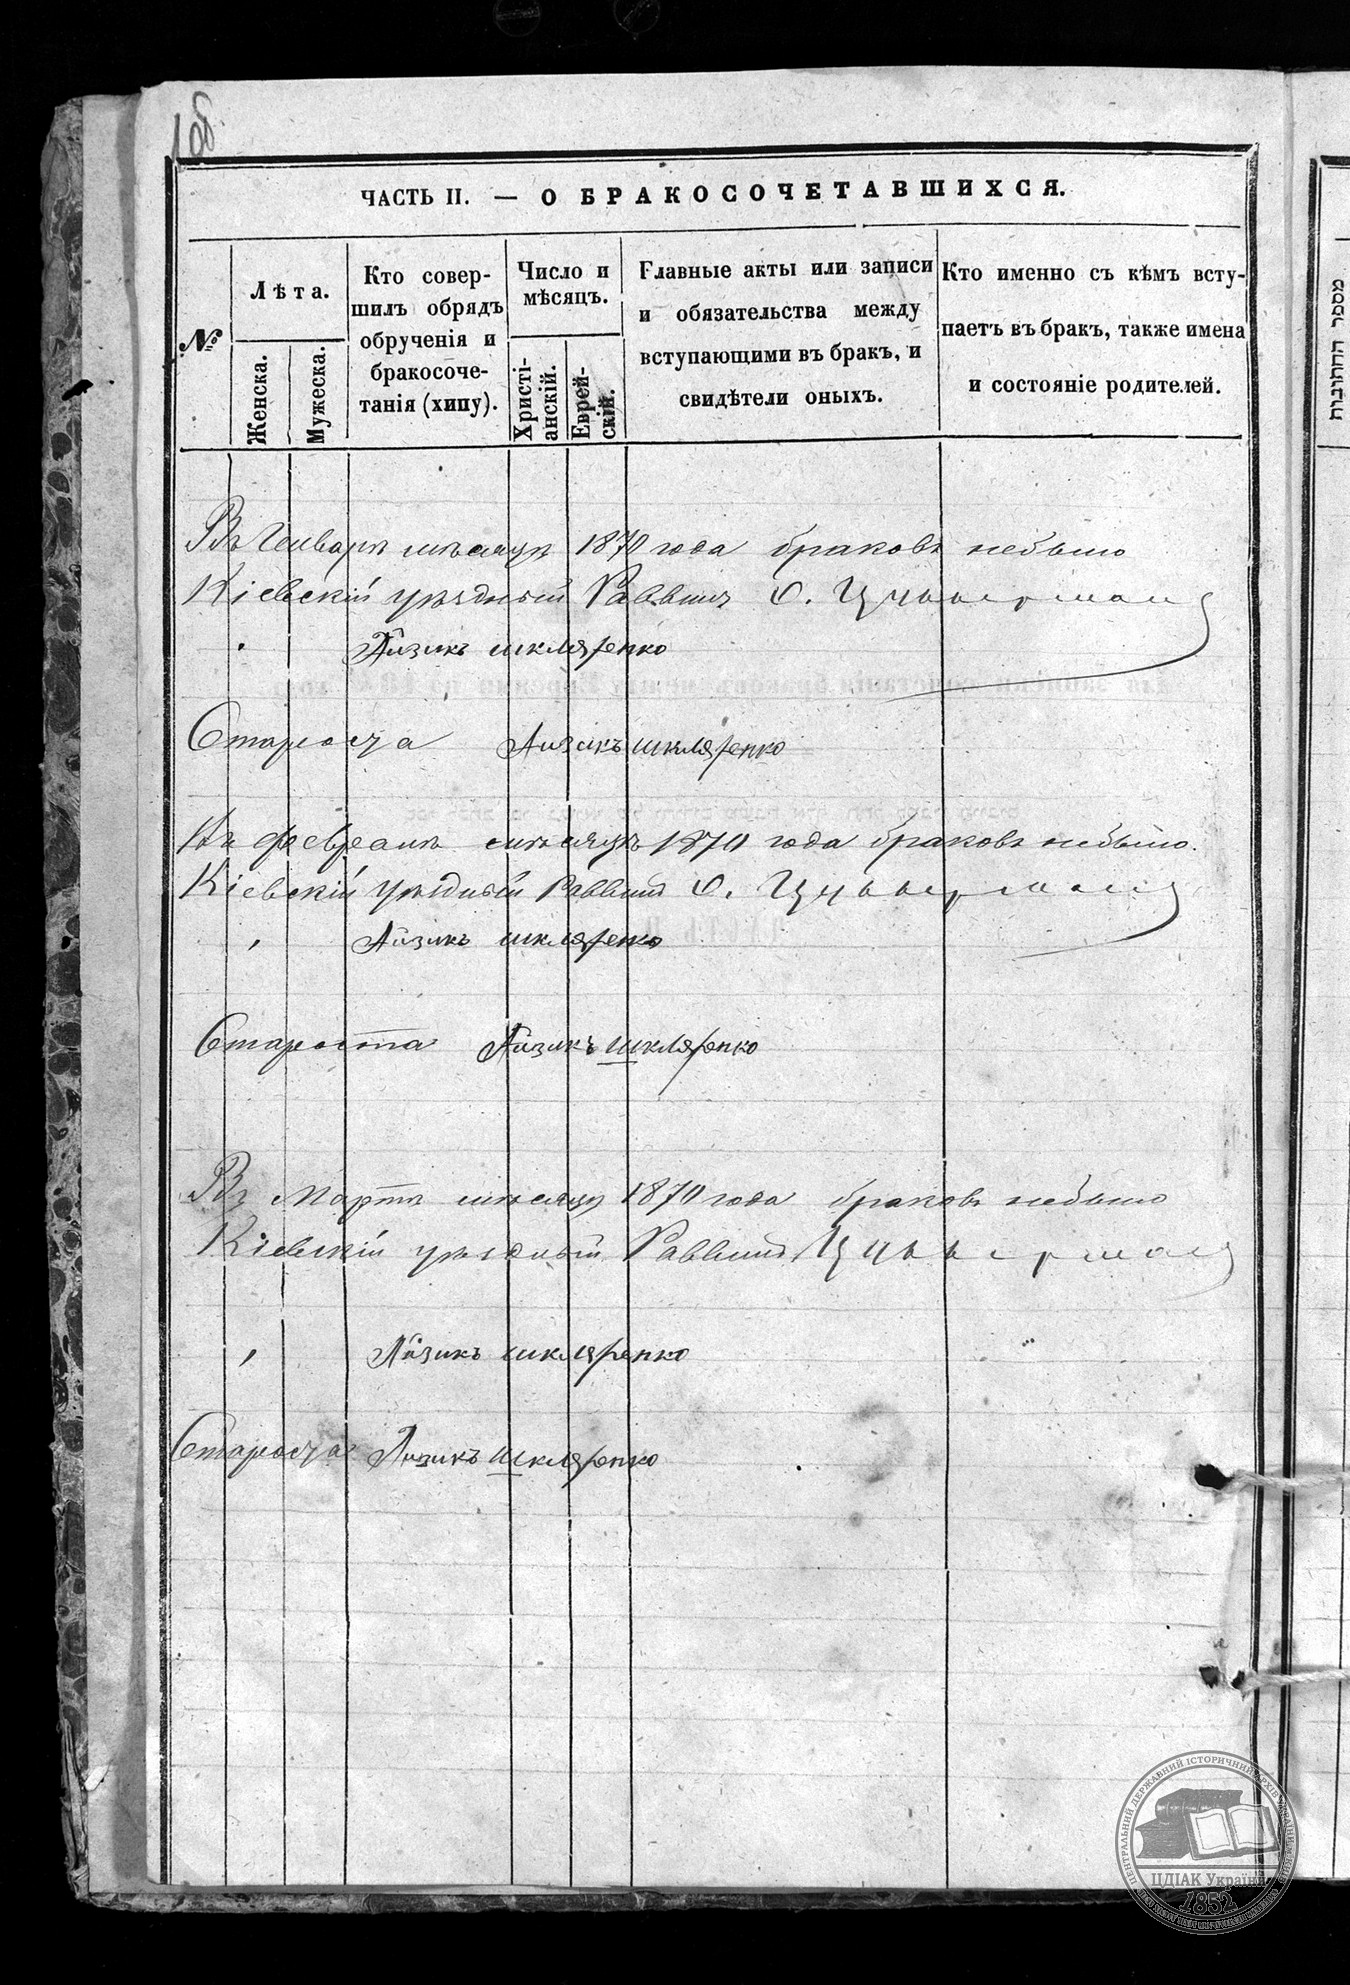 1об.
ЧАСТЬ II. — О БРАКОСОЧЕТАВШИХСЯ.
№
Лѣта.
Женска.
Мужеска.
Кто совер-
шилъ обрядъ
обрученія и
бракосоче-
танія (хипу).
Число и
мѣсяцъ.
Христі-
анскій.
Еврей-
скій.
Главные акты или записи
и обязательства между
вступающими въ бракъ, и
свидѣтели оныхъ.
Кто именно съ кѣмъ всту-
паетъ въ бракъ, также имена
и состояніе родителей.
מספר החתונות
Въ Генварѣ мѣсяцѣ 1870 года браковъ небыло
Кіевскій уѣздный Раввинъ О. Цукерманъ
Айзикъ шкляренко
Староста Айзикъ шкляренко
Въ февралѣ мѣсяцѣ 1870 года браковъ небыло.
Кіевскій уѣздный Раввинъ О. Цукерманъ
Айзикъ шкляренко
Староста Айзикъ шкляренко
Въ Мартѣ мѣсяцѣ 1870 года браковъ небыло
Кіевскій уѣздный Раввинъ Цукерманъ
Айзикъ шкляренко
Староста Айзикъ шкляренко
ЦЕНТРАЛЬНИЙ ДЕРЖАВНИЙ ІСТОРИЧНИЙ АРХІВ УКРАЇНИ
ЦДІАК України
1852